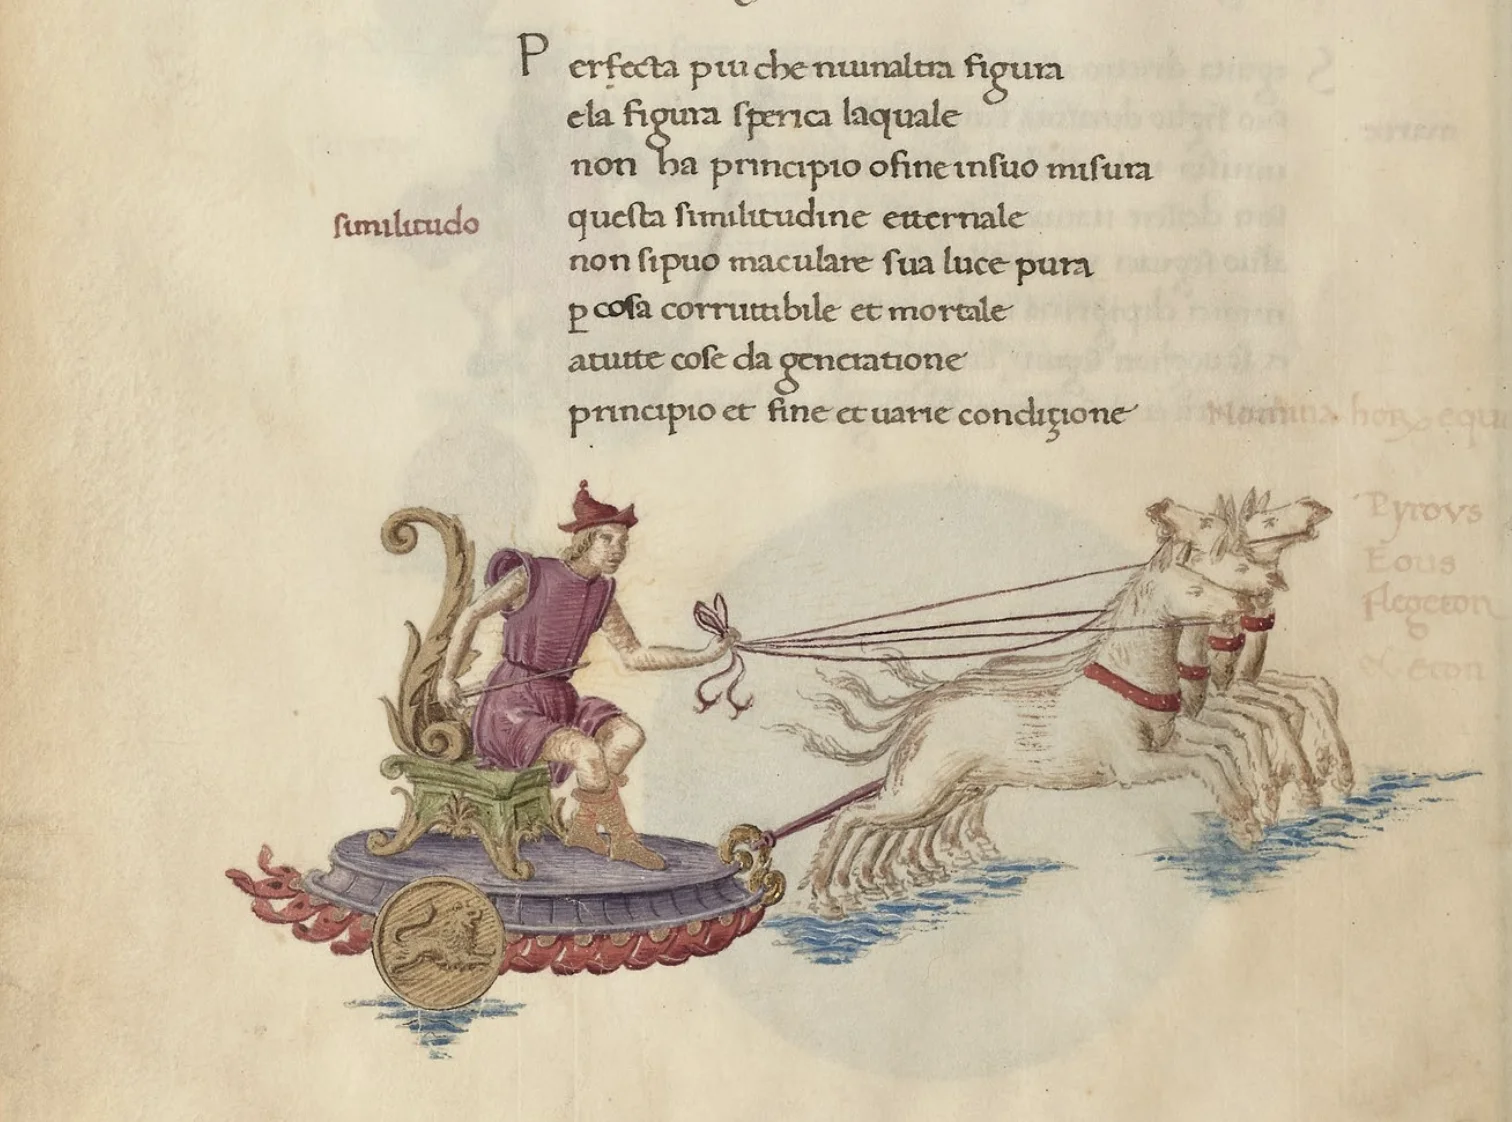 Perfecta piu che niunaltra figura
ela figura sperica laquale
non ha principio ofine insuo misura
similitudo
questa similitudine etternale
non sipuo maculare sua luce pura
p cosa corruttibile et mortale
atutte cose da generatione
principio et fine et uarie condiçione
Nomina hoꝝ equ
Pyrovs
Eous
flegeton